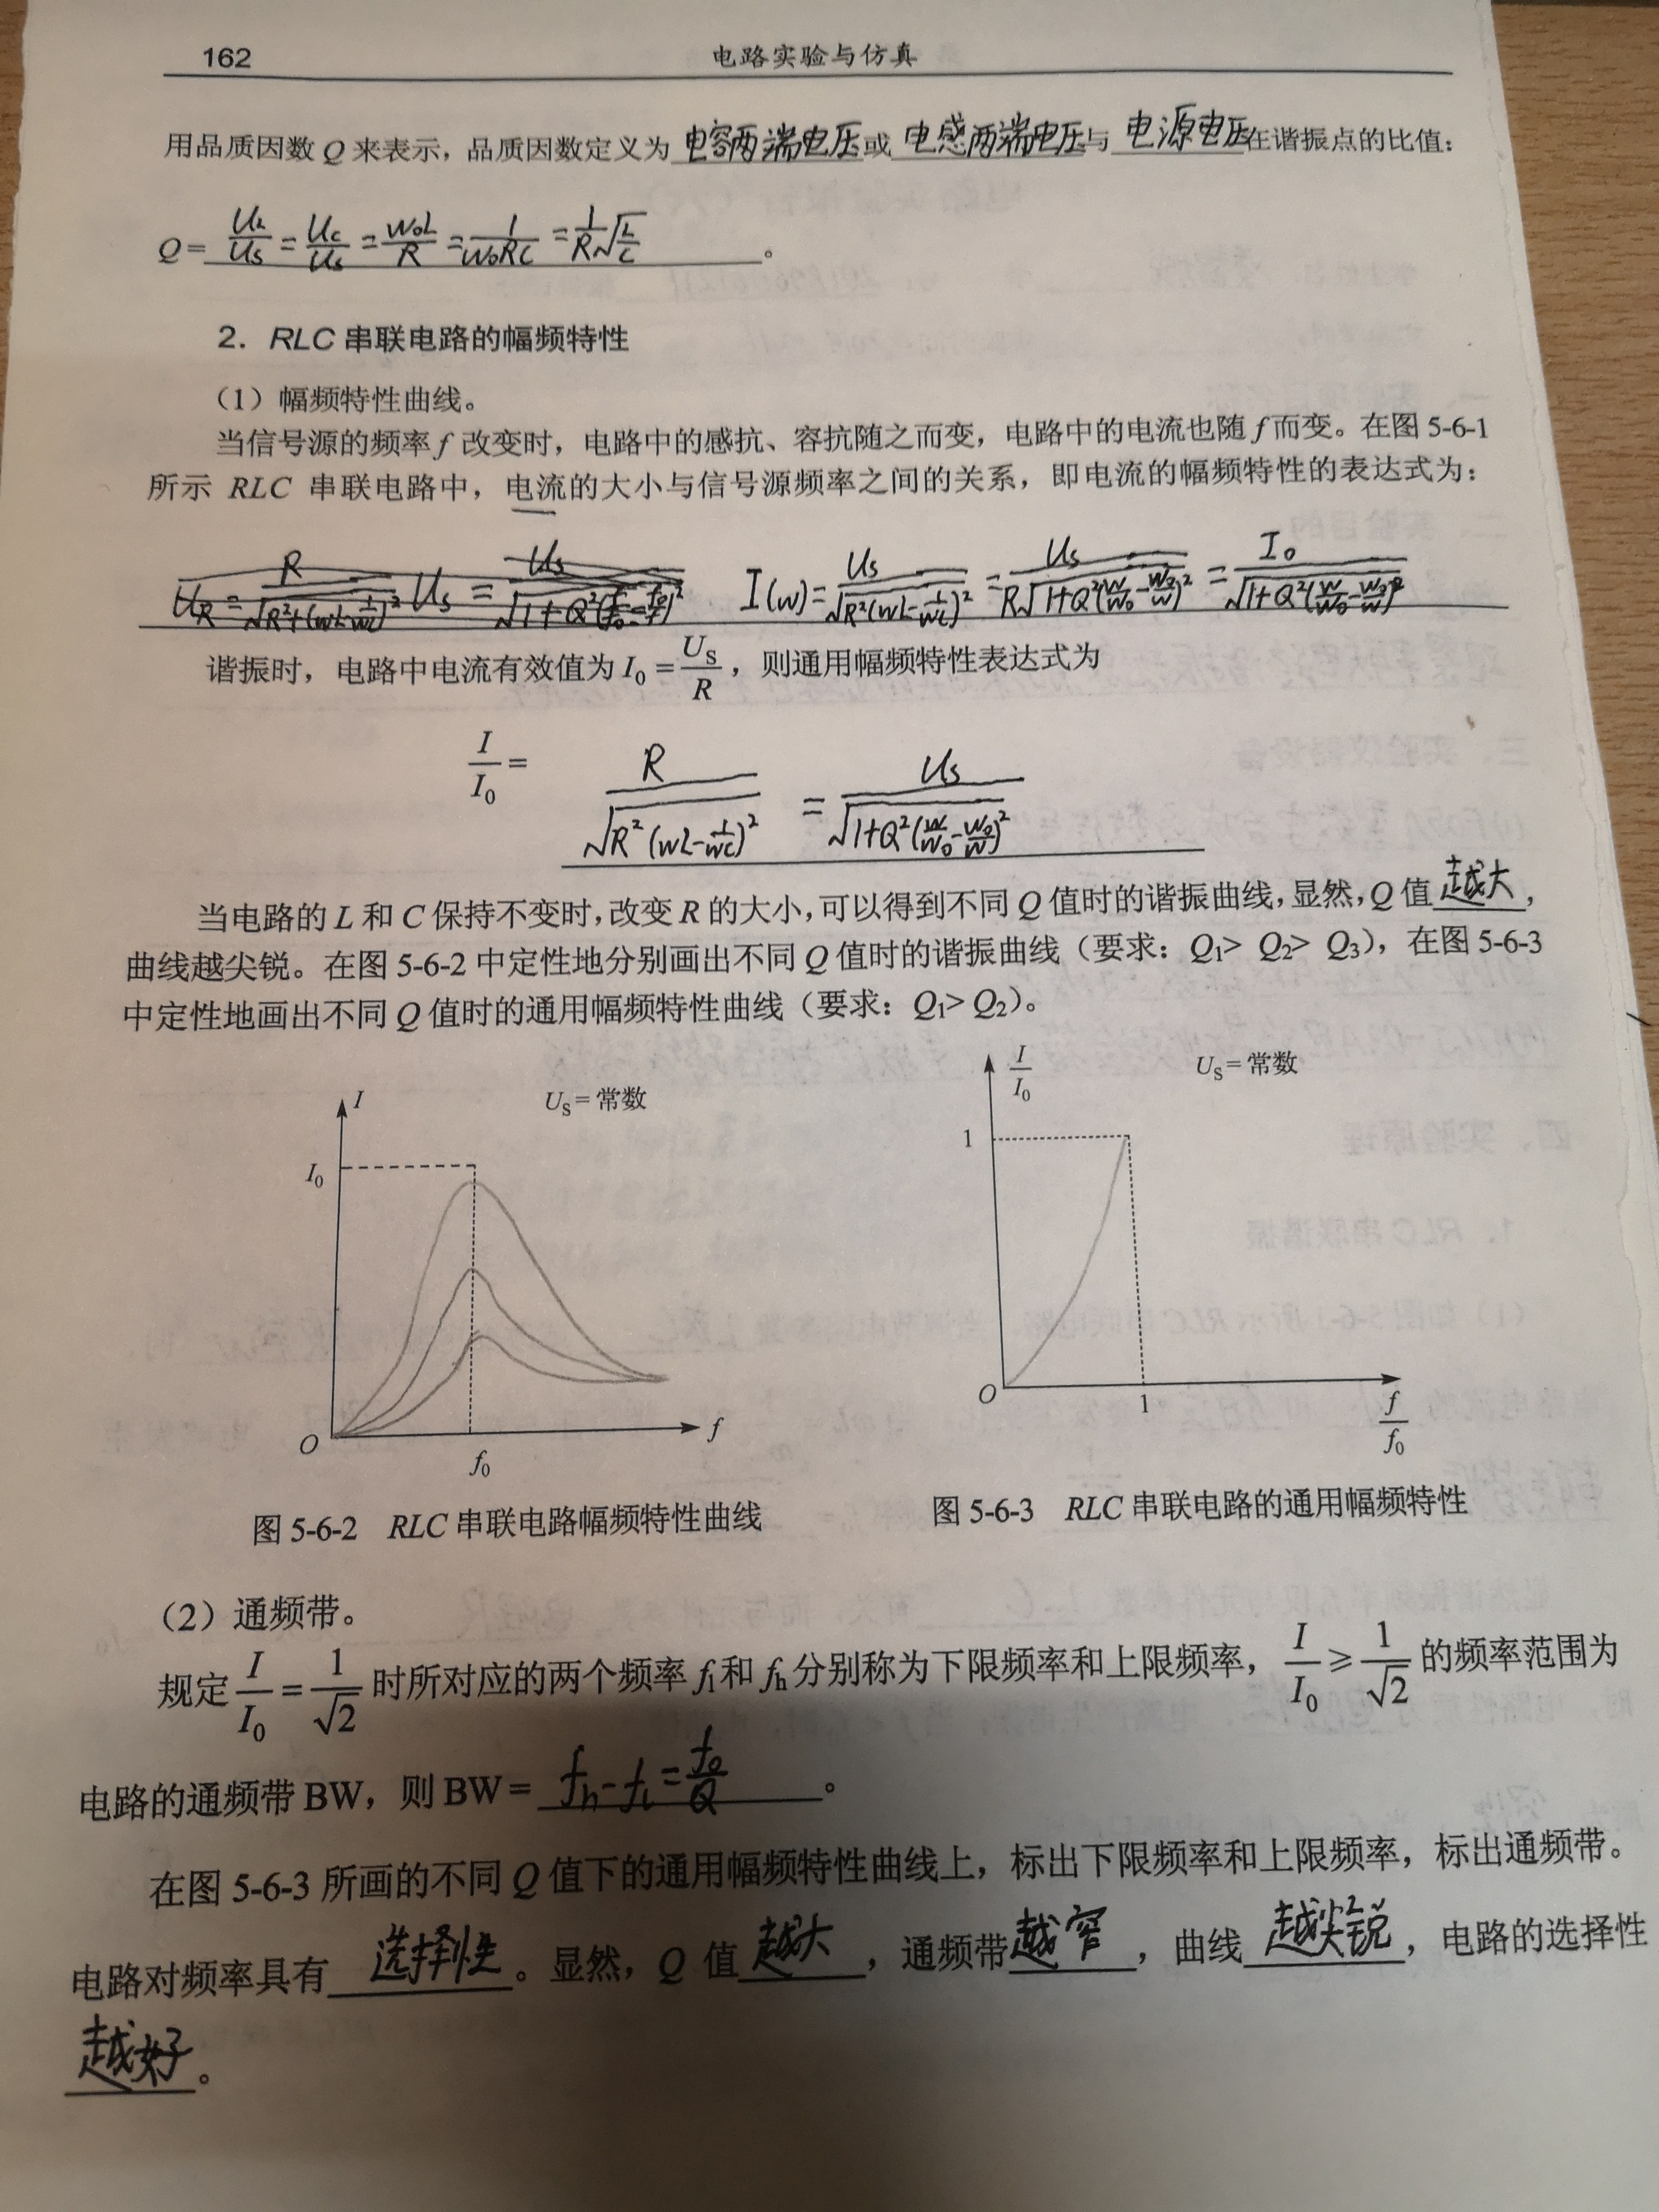 162 电路实验与仿真
用品质因数 Q 来表示，品质因数定义为 电容两端电压 或 电感两端电压 与 电源电压 在谐振点的比值：
Q= U_L/U_S = U_C/U_S = w₀L/R = 1/(w₀RC) = (1/R)√(L/C) 。
2．RLC 串联电路的幅频特性
（1）幅频特性曲线。
当信号源的频率 f 改变时，电路中的感抗、容抗随之而变，电路中的电流也随 f 而变。在图 5-6-1
所示 RLC 串联电路中，电流的大小与信号源频率之间的关系，即电流的幅频特性的表达式为：
U_R = R/√(R²+(wL-1/wC)²) U_S = U_S/√(1+Q²(f/f₀-f₀/f)²) I(w) = U_S/√(R²(wL-1/wC)²) = U_S/(R√(1+Q²(w/w₀-w₀/w)²)) = I₀/√(1+Q²(w/w₀-w₀/w)²)
谐振时，电路中电流有效值为 I₀ = U_S/R ，则通用幅频特性表达式为
I/I₀ = R/√(R²(wL-1/wC)²) = U_S/√(1+Q²(w/w₀-w₀/w)²)
当电路的 L 和 C 保持不变时，改变 R 的大小，可以得到不同 Q 值时的谐振曲线，显然，Q 值 越大 ，
曲线越尖锐。在图 5-6-2 中定性地分别画出不同 Q 值时的谐振曲线（要求：Q₁> Q₂> Q₃），在图 5-6-3
中定性地画出不同 Q 值时的通用幅频特性曲线（要求：Q₁> Q₂）。
I
U_S = 常数
I₀
O
f₀
f
I/I₀
U_S = 常数
1
O
1
f/f₀
图 5-6-2 RLC 串联电路幅频特性曲线
图 5-6-3 RLC 串联电路的通用幅频特性
（2）通频带。
规定 I/I₀ = 1/√2 时所对应的两个频率 f_l 和 f_h 分别称为下限频率和上限频率，I/I₀ ≥ 1/√2 的频率范围为
电路的通频带 BW，则 BW = f_h - f_l = f₀/Q 。
在图 5-6-3 所画的不同 Q 值下的通用幅频特性曲线上，标出下限频率和上限频率，标出通频带。
电路对频率具有 选择性 。显然，Q 值 越大 ，通频带 越窄 ，曲线 越尖锐 ，电路的选择性
越好 。